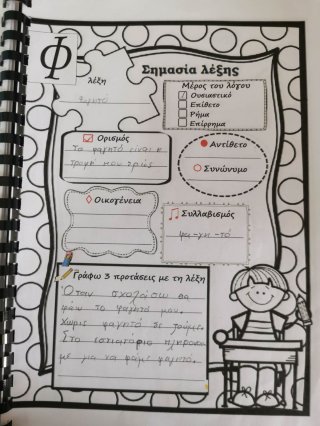 Φ
Σημασία λέξης
λέξη
φαγητό
Μέρος του λόγου
Ουσιαστικό
Επίθετο
Ρήμα
Επίρρημα
Ορισμός
Το φαγητό είναι η
τροφή που τρώς
Αντίθετο
Συνώνυμο
Οικογένεια
Συλλαβισμός
φα-γη-τό
Γράφω 3 προτάσεις με τη λέξη
Όταν σχολάσω θα
φάω το φαγητό μου.
Χωρίς φαγητό δε ζούμε.
Στο εστιατόριο
με για να φάμε φαγητό.